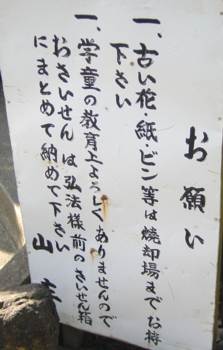 お願い
一、古い花・紙・ビン等は焼却場までお持
下さい
一、学童の教育上よろしくありませんので
おさいせんは弘法様前のさいせん箱
にまとめて納めて下さい
山主